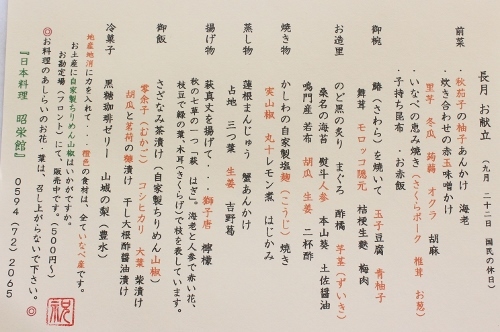 長月 お献立 (九月二十二日 国民の休日)
前菜
・秋茄子の柚子あんかけ 海老
・炊き合わせの赤玉味噌かけ
里芋 冬瓜 蒟蒻 オクラ 胡麻
・いなべの恵み焼き(さくらポーク 椎茸 お葱)
・子持ち昆布 ・お赤飯
御椀
鰆(さわら)を焼いて 玉子豆腐 青柚子
舞茸 モロッコ隠元 桔梗生麩 梅肉
お造里
のど黒の炙り まぐろ 酢橘 芋茎(ずいき)
桑名の海苔 熨斗人参 本山葵 土佐醤油
鳴門産 若布 胡瓜 生姜 二杯酢
焼き物
かしわの自家製塩麹(こうじ)焼き
実山椒 丸十レモン煮 はじかみ
蒸し物
蓮根まんじゅう 蟹あんかけ
占地 三つ葉 生姜 吉野葛
揚げ物
萩真丈を揚げて・・・獅子唐 檸檬
秋の七草の一つ「萩 はぎ」。海老と人参で赤い花、
枝豆で緑の葉、木耳(さくらげ)で枝を表しています。
御飯
さざなみ茶漬け(自家製ちりめん山椒)
零余子(むかご) コシヒカリ 大葉 柴漬け
胡瓜と茗荷の糠漬け 干し大根酢醤油漬け
冷菓子
黒糖珈琲ゼリー 山城の梨(豊水)
地産地消に力を入れて・・・橙色の食材は、全ていなべ産です。
お土産に自家製ちりめん山椒はいかがですか。
お勘定場(フロント)にて、販売中です。(500円~)
◎お料理のあしらいのお花、葉は、召し上がらないで下さい。◎
『日本料理 昭栄館』 0594(72)2065
祝